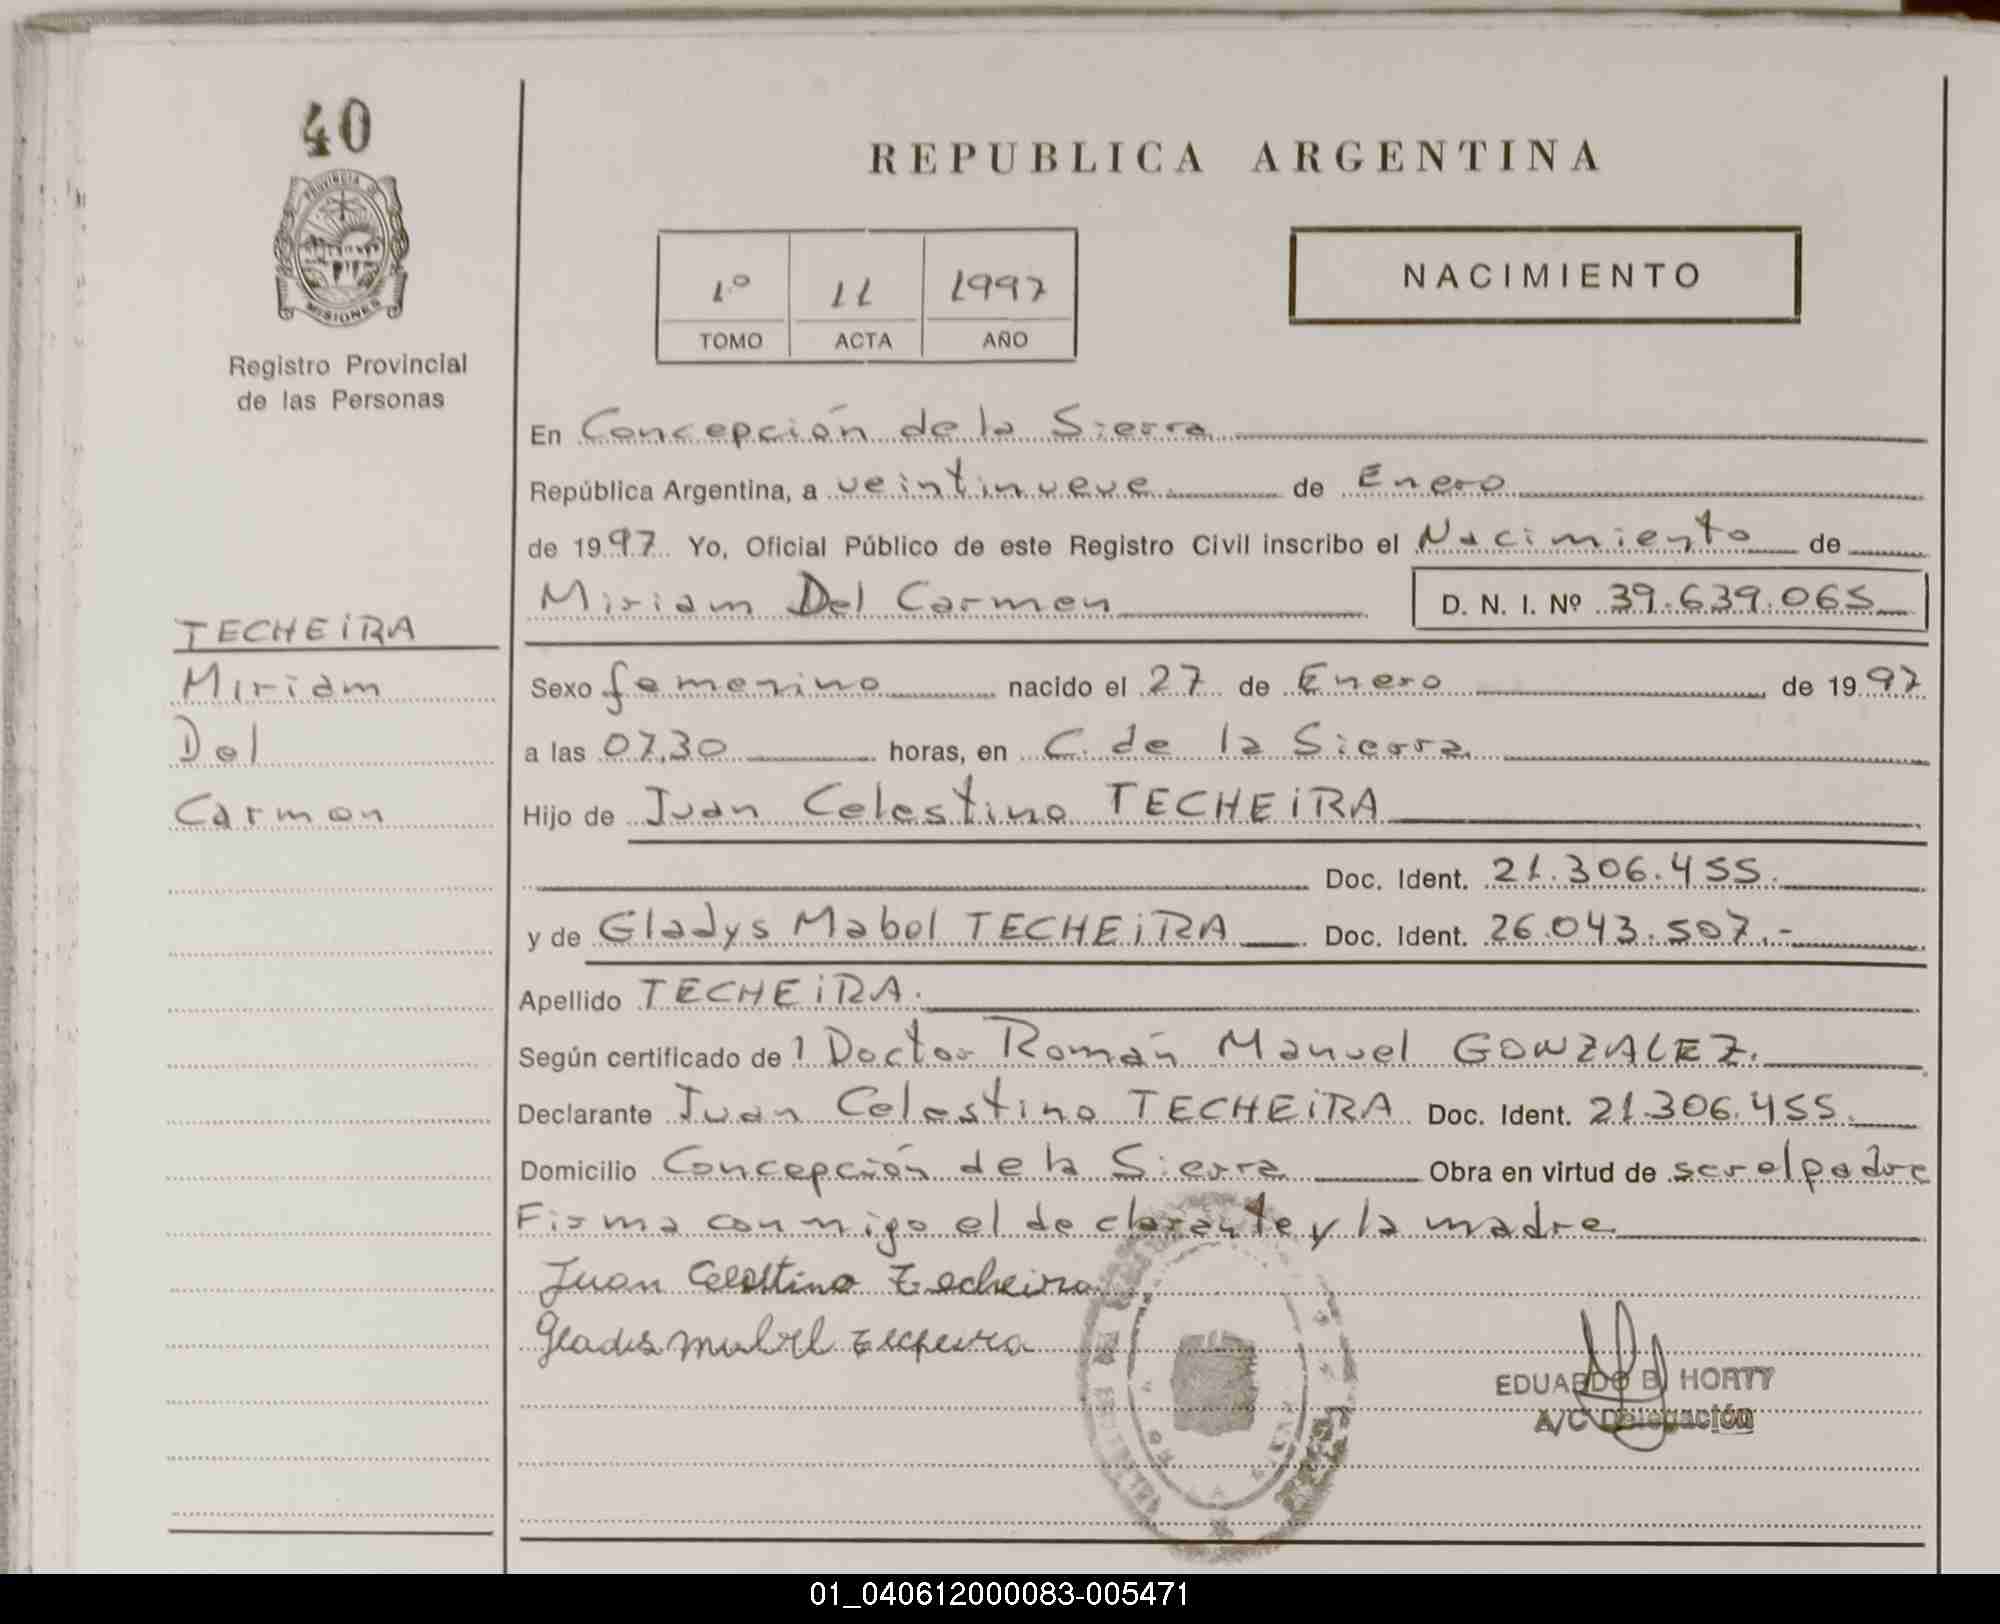 40
PROVINCIA DE
MISIONES
Registro Provincial
de las Personas
REPUBLICA ARGENTINA
1º 11 1997
TOMO ACTA AÑO
NACIMIENTO
En Concepción de la Sierra
República Argentina, a veintinueve de Enero
de 1997 Yo, Oficial Público de este Registro Civil inscribo el Nacimiento de
Miriam Del Carmen D. N. I. Nº 39.639.065
TECHEiRA
Miriam
Del
Carmen
Sexo femenino nacido el 27 de Enero de 1997
a las 07,30 horas, en C. de la Sierra
Hijo de Juan Celestino TECHEiRA
Doc. Ident. 21.306.455.
y de Gladys Mabel TECHEiRA Doc. Ident. 26.043.507.-
Apellido TECHEiRA.
Según certificado de l Doctor Román Manuel GONZALEZ.
Declarante Juan Celestino TECHEiRA Doc. Ident. 21.306.455.
Domicilio Concepción de la Sierra Obra en virtud de ser el padre
Firma conmigo el declarante y la madre
Juan Celestino Techeira
Gladis Mabel Techeira
EDUARDO B. HORTY
A/C Delegación
01_040612000083-005471